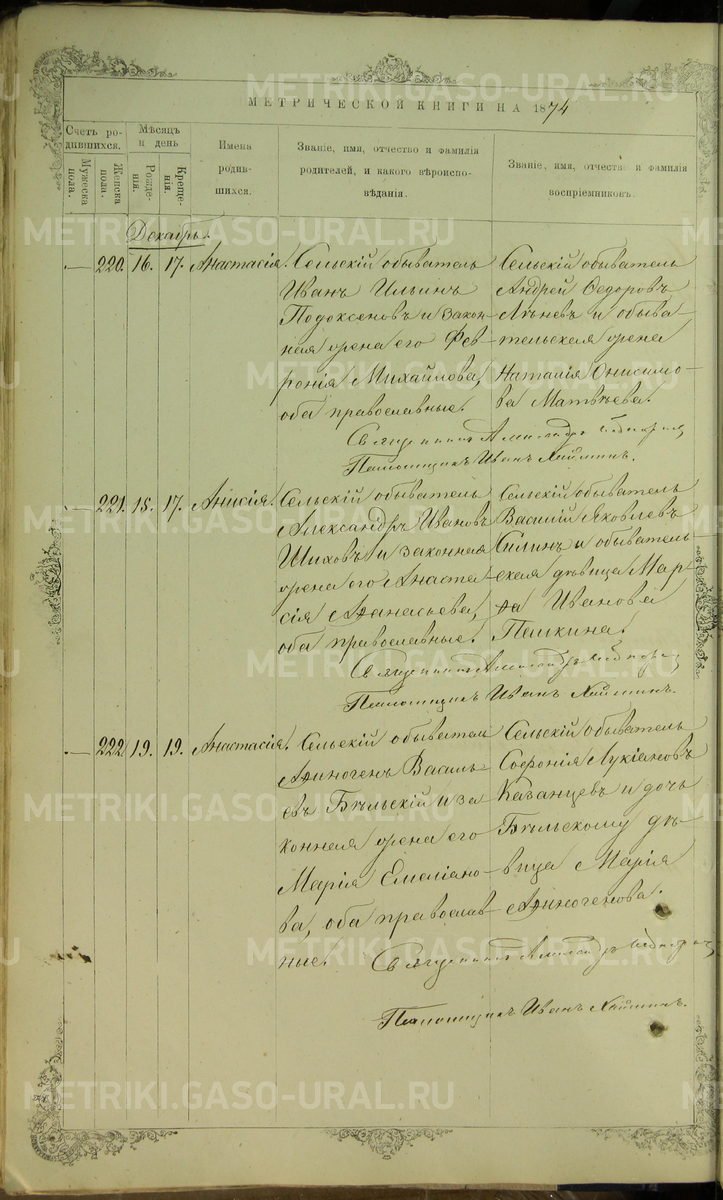 МЕТРИЧЕСКОЙ КНИГИ НА 1874
Счетъ родившихся.
Мужеска пола.
Женска пола.
Мѣсяцъ и день
Рожденія.
Крещенія.
Имена родившихся.
Званіе, имя, отчество и фамилія родителей, и какого вѣроисповѣданія.
Званіе, имя, отчество и фамилія воспріемниковъ.
Декабрь.
— 220. 16. 17. Анастасія.
Сельскій обыватель
Иванъ Ильинъ
Подоксеновъ и закон-
ная жена его Фев-
ронія Михайлова,
оба православные.
Сельскій обыватель
Андрей Ѳедоровъ
и обыва-
тельская жена
Наталія Онисимо-
ва Матвѣева.
Священникъ Александръ
Помощникъ Иванъ
— 221. 15. 17. Анисія.
Сельскій обыватель
Александръ Ивановъ
Шиховъ и законная
жена его Анаста-
сія Аѳанасьева,
оба православные.
Сельскій обыватель
Василій Яковлевъ
Силинъ и обыватель-
ская дѣвица Мар-
ѳа Иванова
Пашкина.
Священникъ Александръ
Помощникъ Иванъ
— 222. 19. 19. Анастасія.
Сельскій обыватель
Аѳиногенъ Василь-
евъ Бѣльскій и за
конная жена его
Марія Емеліано-
ва, оба православ-
ные.
Сельскій обыватель
Софонія Лукіановъ
Казанцевъ и дочь
Бѣльскому дѣ-
вица Марія
Аѳиногенова.
Священникъ Александръ
Помощникъ Иванъ
METRIKI.GASO-URAL.RU